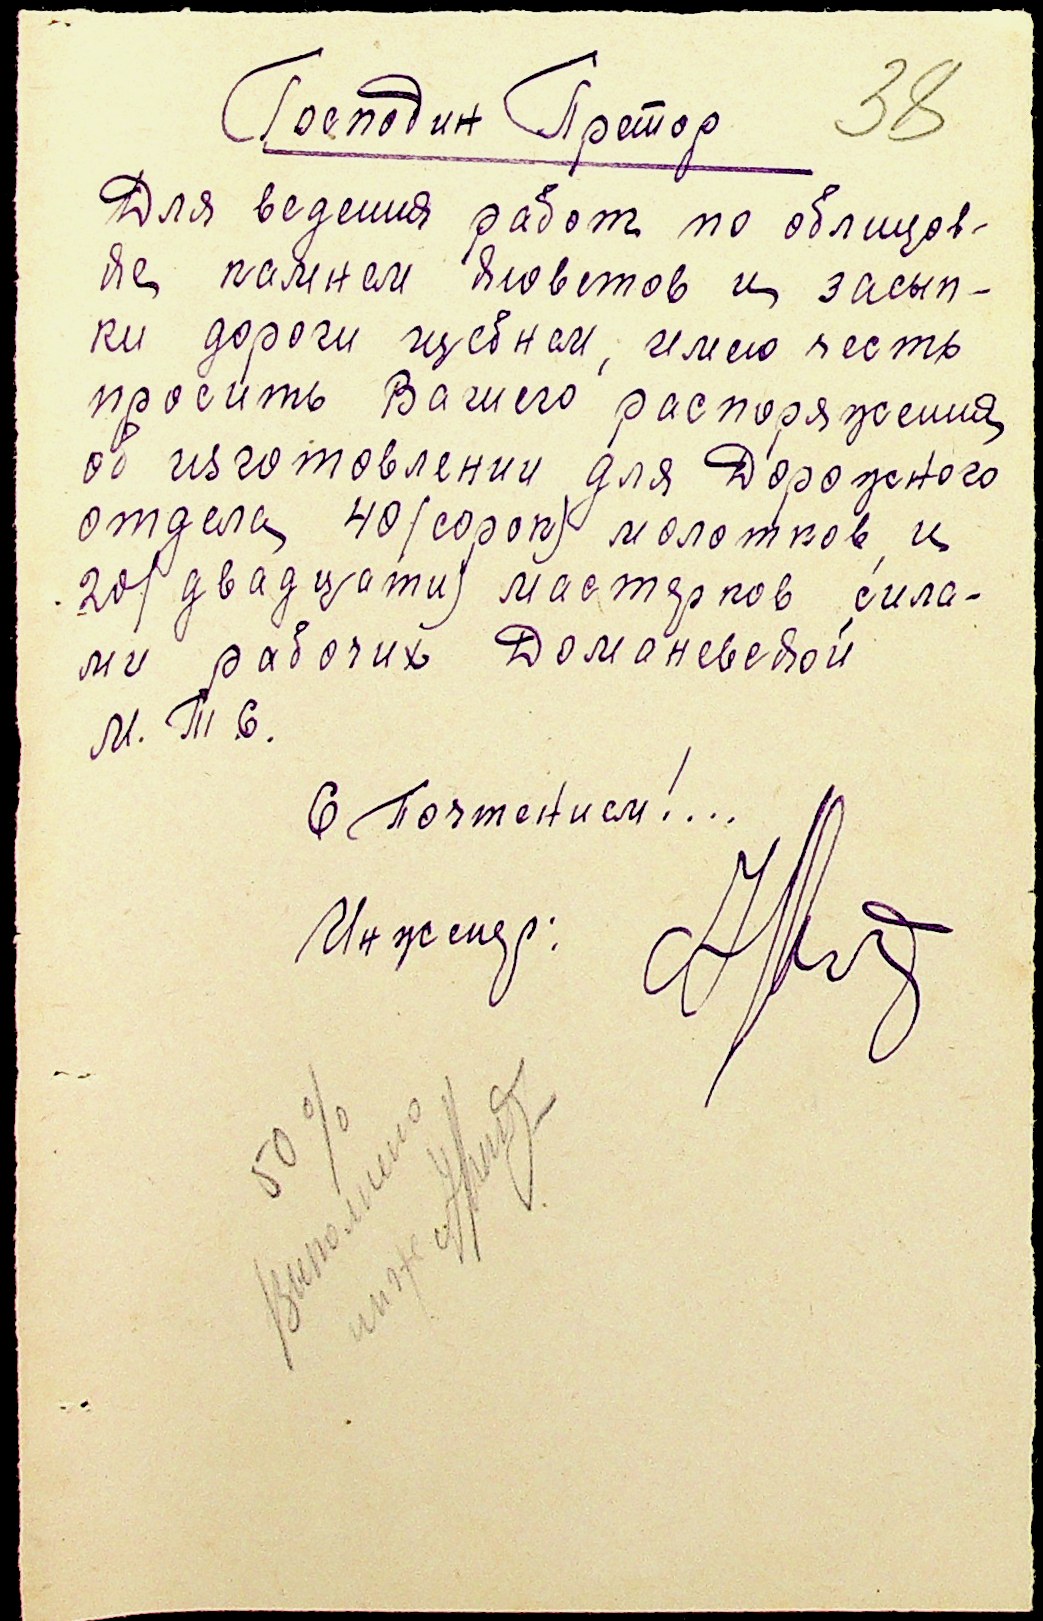 38
Господин Претор
Для ведения работ по облицов-
ке камнем кюветов и засып-
ки дороги щебнем, имею честь
просить Вашего распоряжения
об изготовлении для Дорожного
отдела 40 (сорок) молотков и
20 (двадцати) мастерков сила-
ми рабочих Доманевской
М. Т С.
С Почтением!...
Инженер:
50 %
Выполнено
инж